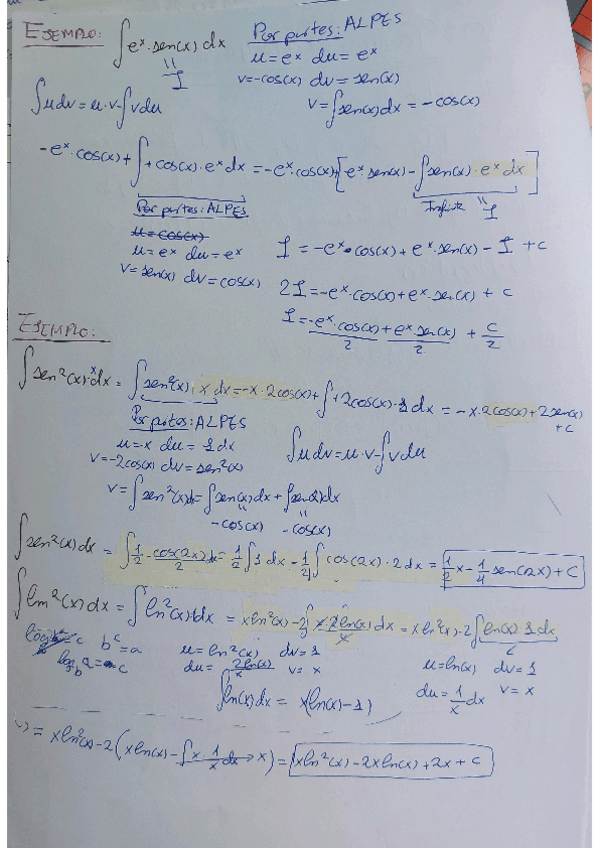 EJEMPLO: ∫e^x·sen(x)dx Por partes: ALPES
" I
u=e^x du=e^x
v=-cos(x) dv=sen(x)
∫udv=u·v-∫vdu v=∫sen(x)dx=-cos(x)
-e^x·cos(x)+∫+cos(x)·e^x dx=-e^x·cos(x)+[e^x sen(x)-∫sen(x)·e^x dx]
Por partes: ALPES " I
u=cos(x)
u=e^x du=e^x I=-e^x·cos(x)+e^x·sen(x)-I+c
v=sen(x) dv=cos(x) 2I=-e^x·cos(x)+e^x·sen(x)+c
I=-e^x·cos(x)/2+e^x sen(x)/2+c/2
EJEMPLO:
∫sen²(x)·x dx=∫sen²(x)·x dx=-x·2cos(x)+∫+2cos(x)·1dx=-x·2cos(x)+2sen(x)+c
Por partes: ALPES
u=x du=1dx ∫udv=u·v-∫vdu
v=-2cos(x) dv=sen²(x)
v=∫sen²(x)dx=∫sen(x)dx+∫sen(x)dx
" "
-cos(x) -cos(x)
∫sen²(x)dx=∫1/2-cos(2x)/2 dx=1/2∫1dx-1/4∫cos(2x)·2dx=1/2x-1/4sen(2x)+C
∫ln²(x)dx=∫ln²(x)·1dx=xln²(x)-2∫x·2ln(x)/x dx=xln²(x)-2∫ln(x)·1dx
b^c=a u=ln²(x) dv=1 u=ln(x) dv=1
log_b a=c du=2ln(x)/x v=x du=1/x dx v=x
∫ln(x)dx=x(ln(x)-1)
=xln²(x)-2(xln(x)-∫x·1/x dx→x)=xln²(x)-2xln(x)+2x+c